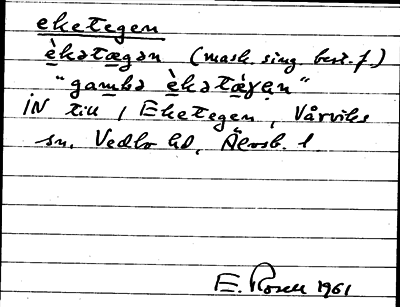 eketegen
èkətægən (mask. sing. best. f)
"gamba èkətǽgən"
IN till / Eketegen, Vårviks
sn. Vedbo hd, Älvsb. l
E. Rosell 1961